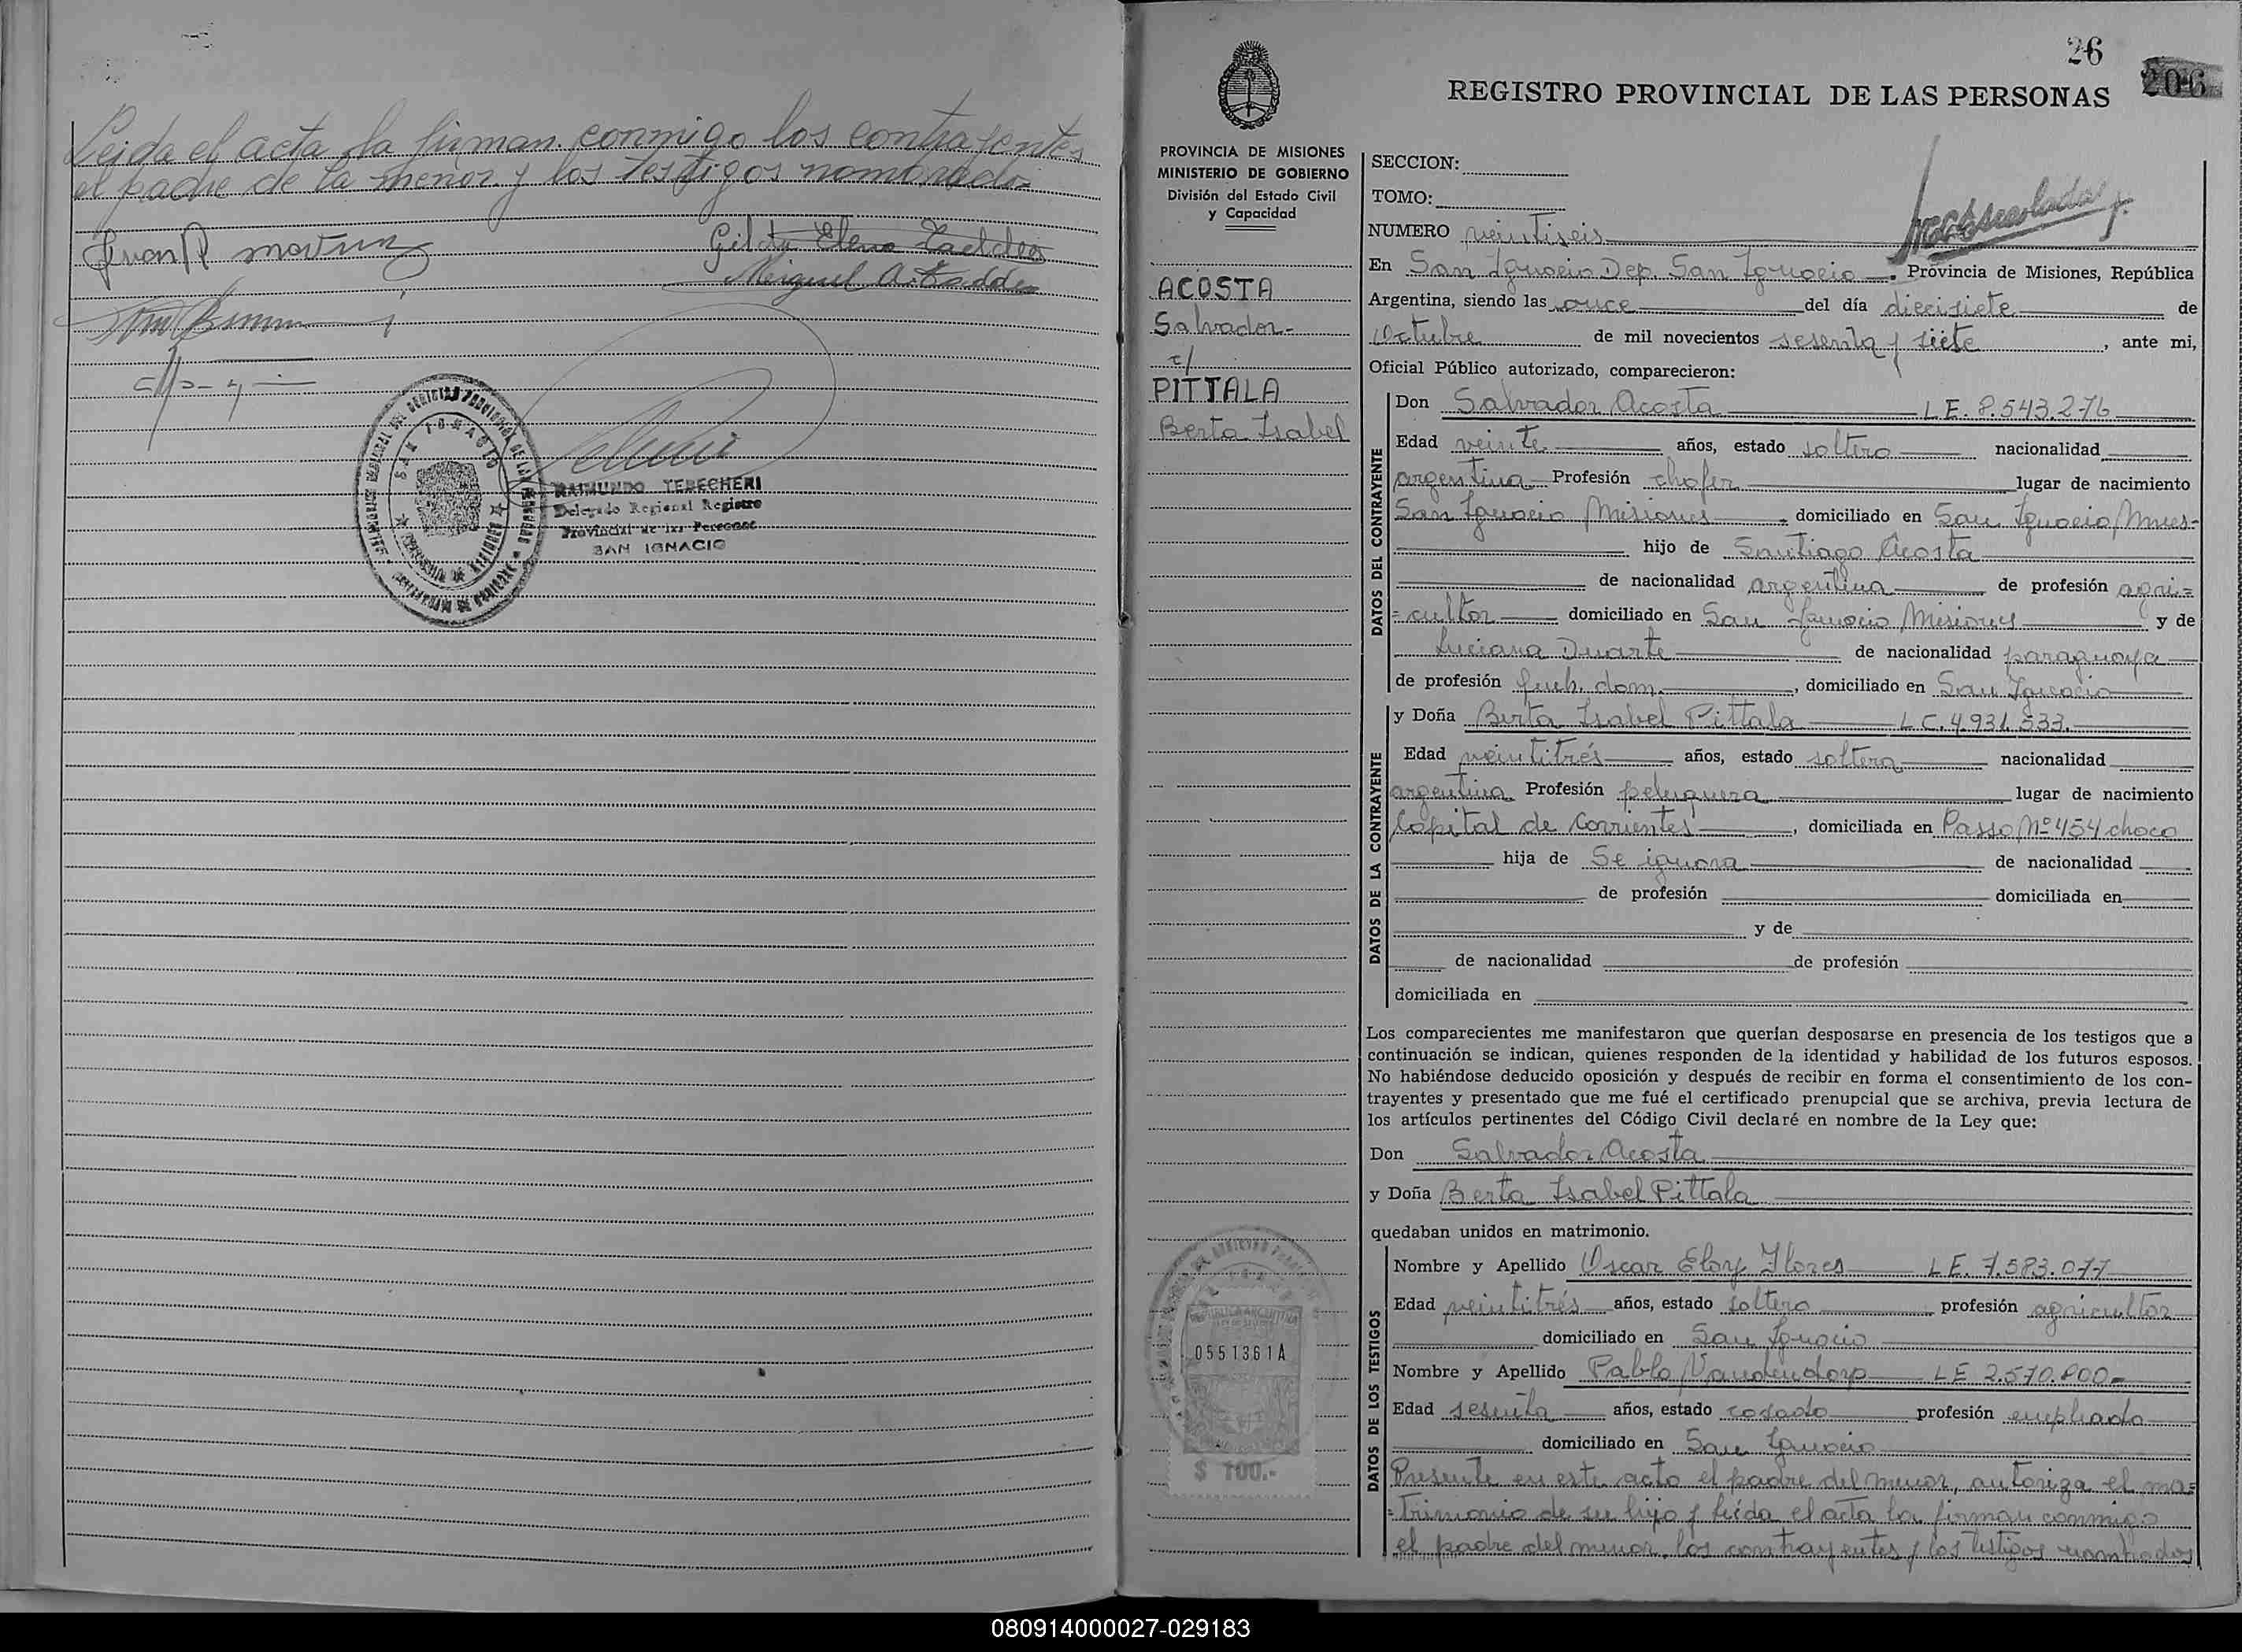 Leida el acta la firman conmigo los contrayentes
el padre de la menor y los testigos nombrados
Miguel A.
SAN IGNACIO
RAIMUNDO TERECHERI
Delegado Regional Registro
Provincial de las Personas
SAN IGNACIO
26
206
REGISTRO PROVINCIAL DE LAS PERSONAS
PROVINCIA DE MISIONES
MINISTERIO DE GOBIERNO
División del Estado Civil
y Capacidad
ACOSTA
Salvador-
c/
PITTALA
Berta Isabel
0551361A
$ 100.-
SECCION:
TOMO:
NUMERO veintiseis
En San Ignacio Dep. San Ignacio. Provincia de Misiones, República
Argentina, siendo las once del día diecisiete de
Octubre de mil novecientos sesenta y siete, ante mi,
Oficial Público autorizado, comparecieron:
DATOS DEL CONTRAYENTE
Don Salvador Acosta L E. 8.543.276
Edad veinte años, estado soltero nacionalidad
argentina Profesión chofer lugar de nacimiento
San Ignacio Misiones, domiciliado en San Ignacio Mnes-
hijo de Santiago Acosta
de nacionalidad argentina de profesión agri=
=cultor domiciliado en San Ignacio Misiones y de
Luciana Duarte de nacionalidad paraguaya
de profesión queh. dom., domiciliado en San Ignacio
DATOS DE LA CONTRAYENTE
y Doña Berta Isabel Pittala L C. 4.931.533.
Edad veintitrés años, estado soltera nacionalidad
argentina Profesión peluquera lugar de nacimiento
Capital de Corrientes, domiciliada en Passo Nº 454 choco
hija de Se ignora de nacionalidad
de profesión domiciliada en
y de
de nacionalidad de profesión
domiciliada en
Los comparecientes me manifestaron que querían desposarse en presencia de los testigos que a
continuación se indican, quienes responden de la identidad y habilidad de los futuros esposos.
No habiéndose deducido oposición y después de recibir en forma el consentimiento de los con-
trayentes y presentado que me fué el certificado prenupcial que se archiva, previa lectura de
los artículos pertinentes del Código Civil declaré en nombre de la Ley que:
Don Salvador Acosta
y Doña Berta Isabel Pittala
quedaban unidos en matrimonio.
DATOS DE LOS TESTIGOS
Nombre y Apellido Oscar Eloy Flores L E. 7.583.077
Edad veintitrés años, estado soltero profesión agricultor
domiciliado en San Ignacio
Nombre y Apellido Pablo Vandendorp L E 2.570.800-
Edad sesenta años, estado casado profesión empleado
domiciliado en San Ignacio
Presente en este acto el padre del menor, autoriza el ma=
=trimonio de su hijo y leída el acta la firman conmigo
el padre del menor, los contrayentes y los testigos nombrados
080914000027-029183